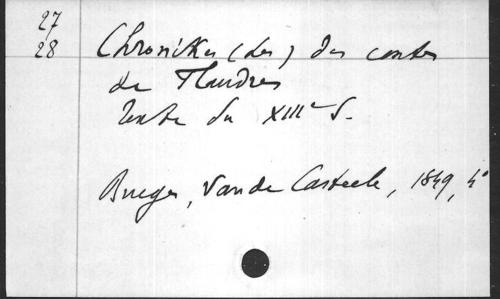 27
28 Chronikes (Les) des contes
de Flandres
texte du XIIIe s.
Bruges, Vande Casteele, 1849, 4°